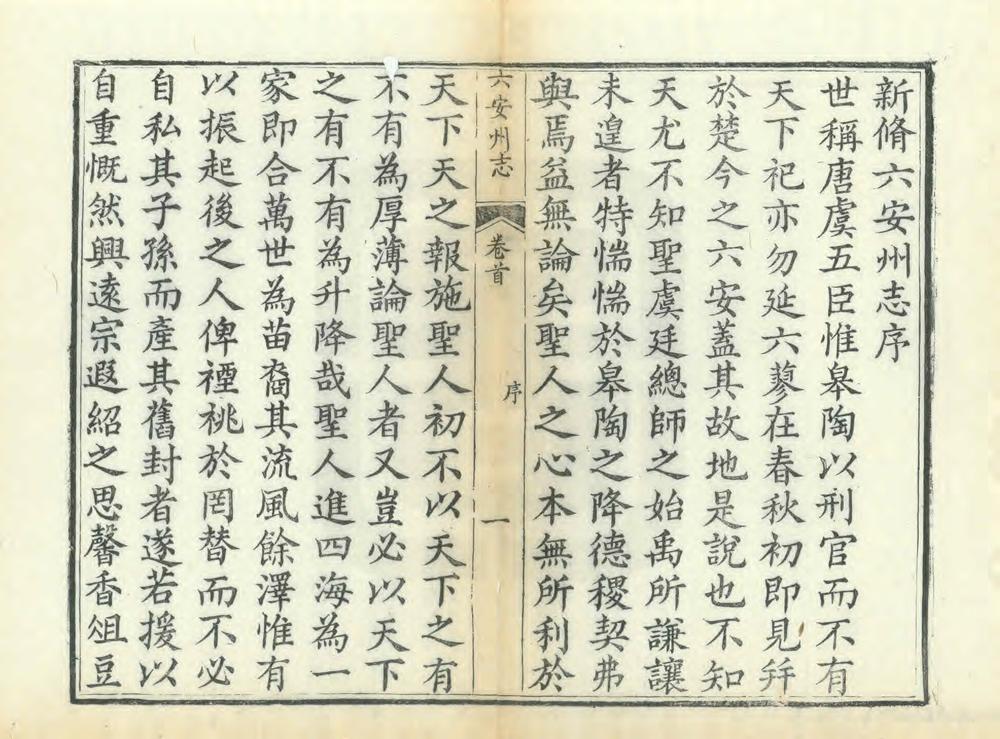 新脩六安州志序
世稱唐虞五臣惟皋陶以刑官而不有
天下祀亦勿延六蓼在春秋初即見幷
於楚今之六安蓋其故地是說也不知
天尤不知聖虞廷總師之始禹所謙讓
未遑者特惴惴於皋陶之降德稷契弗
與焉益無論矣聖人之心本無所利於
六安州志 卷首 序 一
天下天之報施聖人初不以天下之有
不有為厚薄論聖人者又豈必以天下
之有不有為升降哉聖人進四海為一
家即合萬世為苗裔其流風餘澤惟有
以振起後之人俾禋祧於罔替而不必
自私其子孫而產其舊封者遂若援以
自重慨然興遠宗遐紹之思馨香俎豆